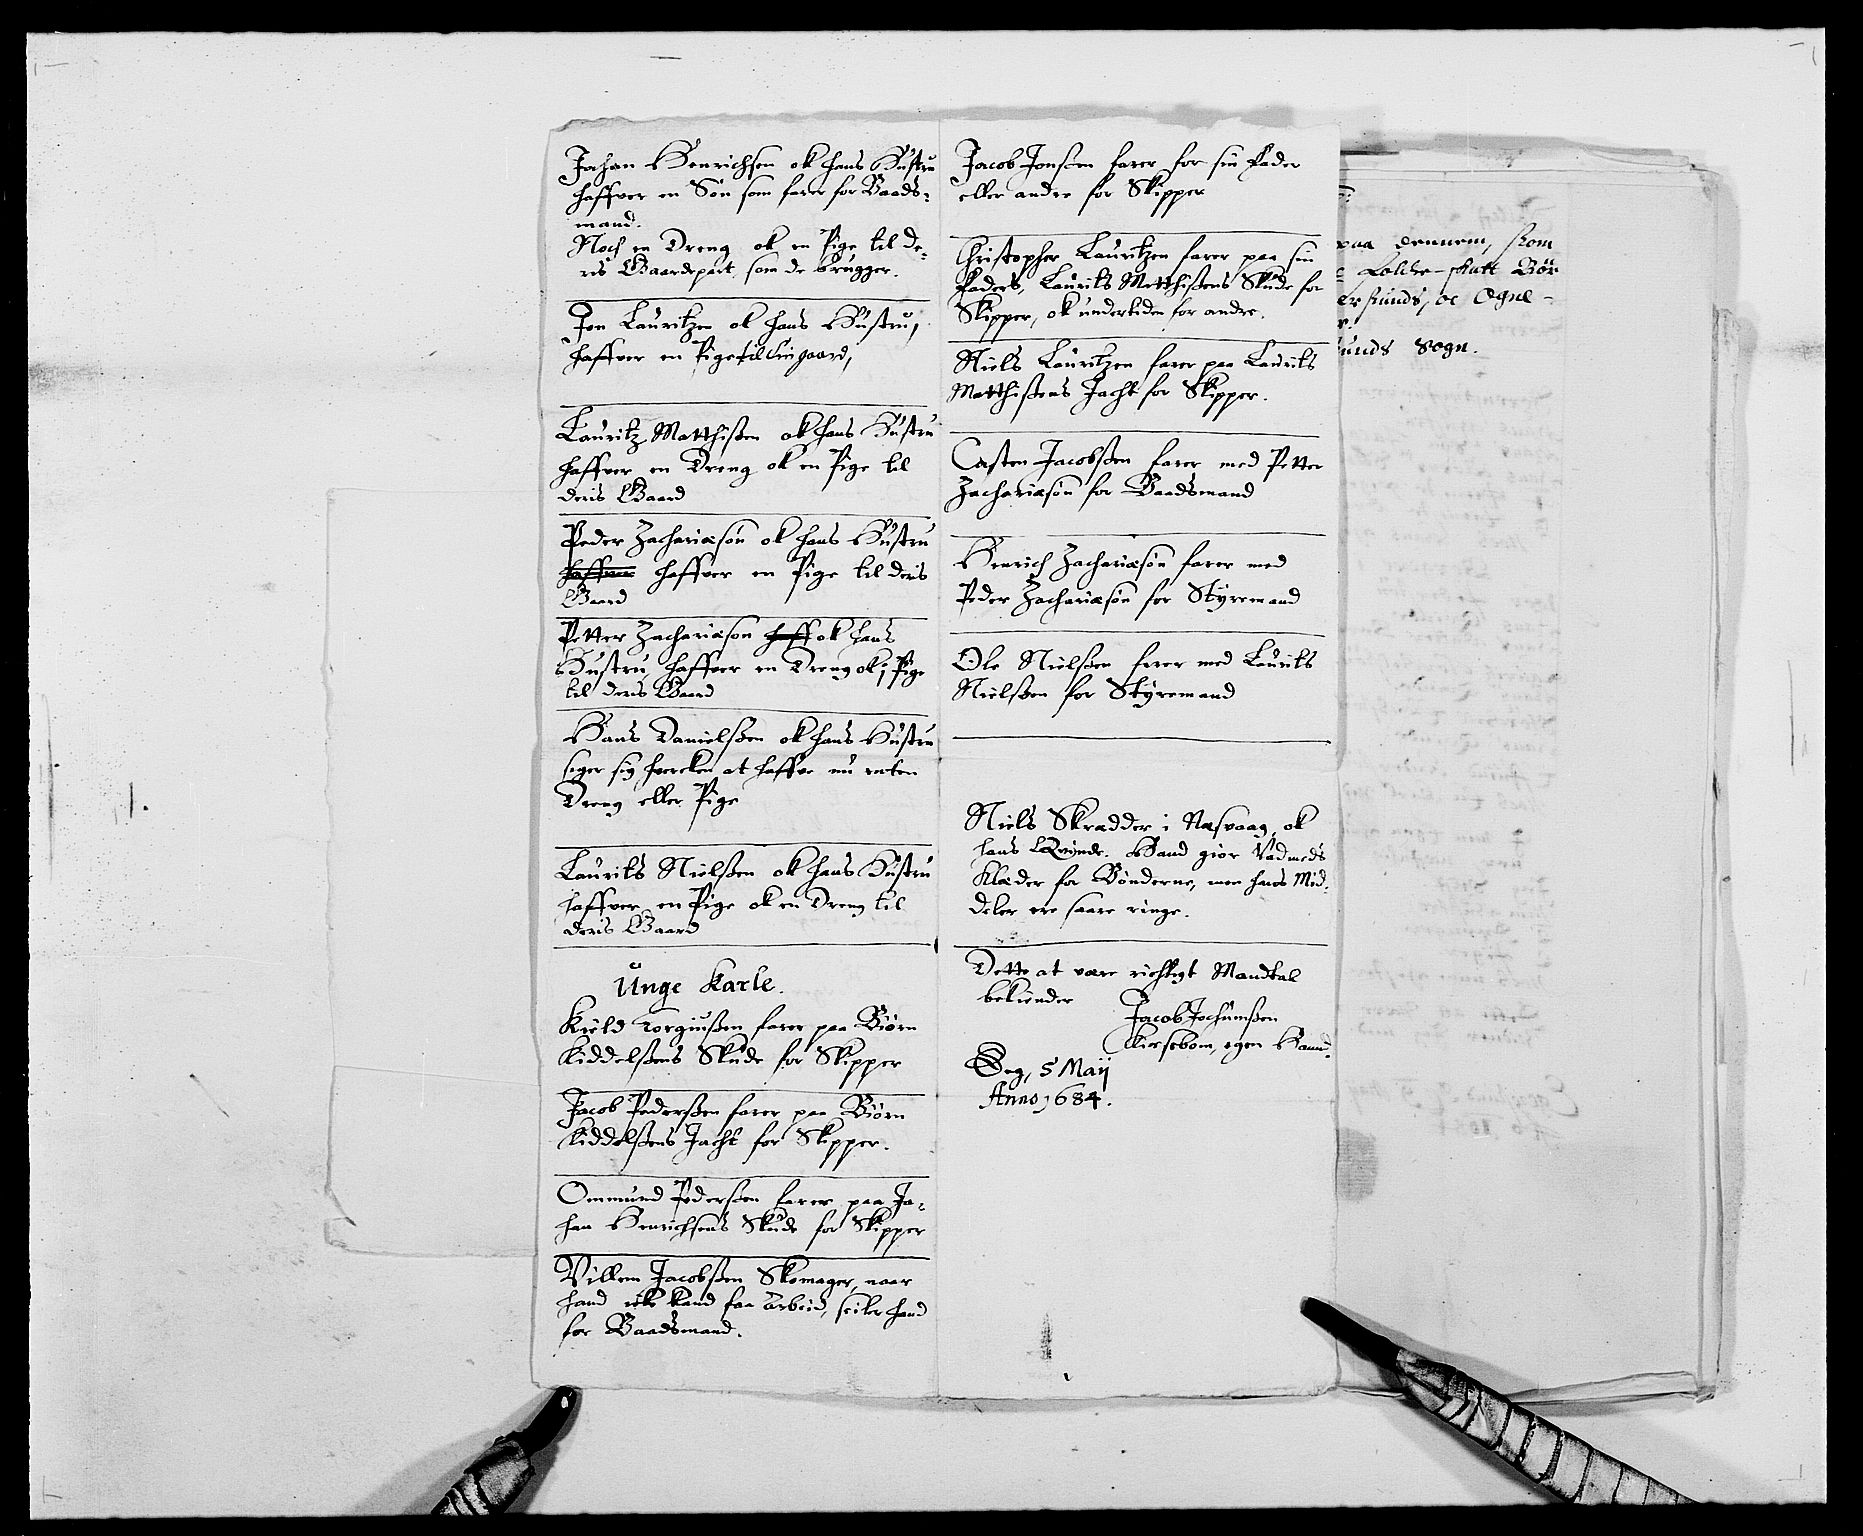 Johan Henrichsen ok hans Hustru
haffver en Søn som farer for Baads-
mand.
Noch en Dreng ok en Pige til de-
ris Gaardepart, som de brugger.
Jon Lauritzen ok hans Hustru,
haffver en Pige til sin gaard,
Lauritz Matthißen ok hans Hustru
haffver en Dreng ok en Pige til
deris Gaard
Peder Zachariæsøn ok hans Hustru
haffver haffver en Pige til deris
Gaard
Petter Zachariæsøn haff ok hans
Hustru, haffver en Dreng ok 1 Pige
til deris Gaard
Hans Danielsßen ok hans Hustru
siger sig hvercken at haffve nu enten
Dreng eller Pige
Laurits Nielsßen ok hans Hustru
haffver en Pige ok en Dreng til
deris Gaard
Unge Karle.
Kield Torgiusßen farer paa Biørn
Kiddelsßens Skude for Skipper
Jacob Pedersßen farer paa Biørn
Kiddelsßens Jacht for Skipper.
Ommund Pedersßen farer paa Jo-
han Henrichsens Skude for Skipper
Villem Jacobsßen Skomager, naar
hand icke kand faa Arbeid, seiler hand
for Baadsmand.
Jacob Jonsßen farer for sin Fader
eller andre for Skipper
Christopher Lauritzen farer paa sin
Faders, Laurits Matthißens Skude for
Skipper, ok undertiden for andre.
Niels Lauritzen farer paa Laurits
Matthißens Jacht for Skipper.
Casten Jacobsßen farer med Petter
Zachariæsøn for Baadsmand
Henrich Zachariæsøn farer med
Peder Zachariæsøn for Styremand
Ole Nielsßen farer med Laurits
Nielsßen for Styremand
Niels Skrædder i Næsvaag, ok
hans Qvinde. Hand giør Vadmels
Klæder for Bønderne, men hans Mid-
deler ere saare ringe.
Dette at være richtigt Mandtal
bekiender
Jacob Jochumsßen
Kirsebom, egen Hand.
Sog, 5 Maij
Anno 1684.
paa dennem, som
Folche-skatt Bør
ersunds, oc Ogne-
unds Sogn.